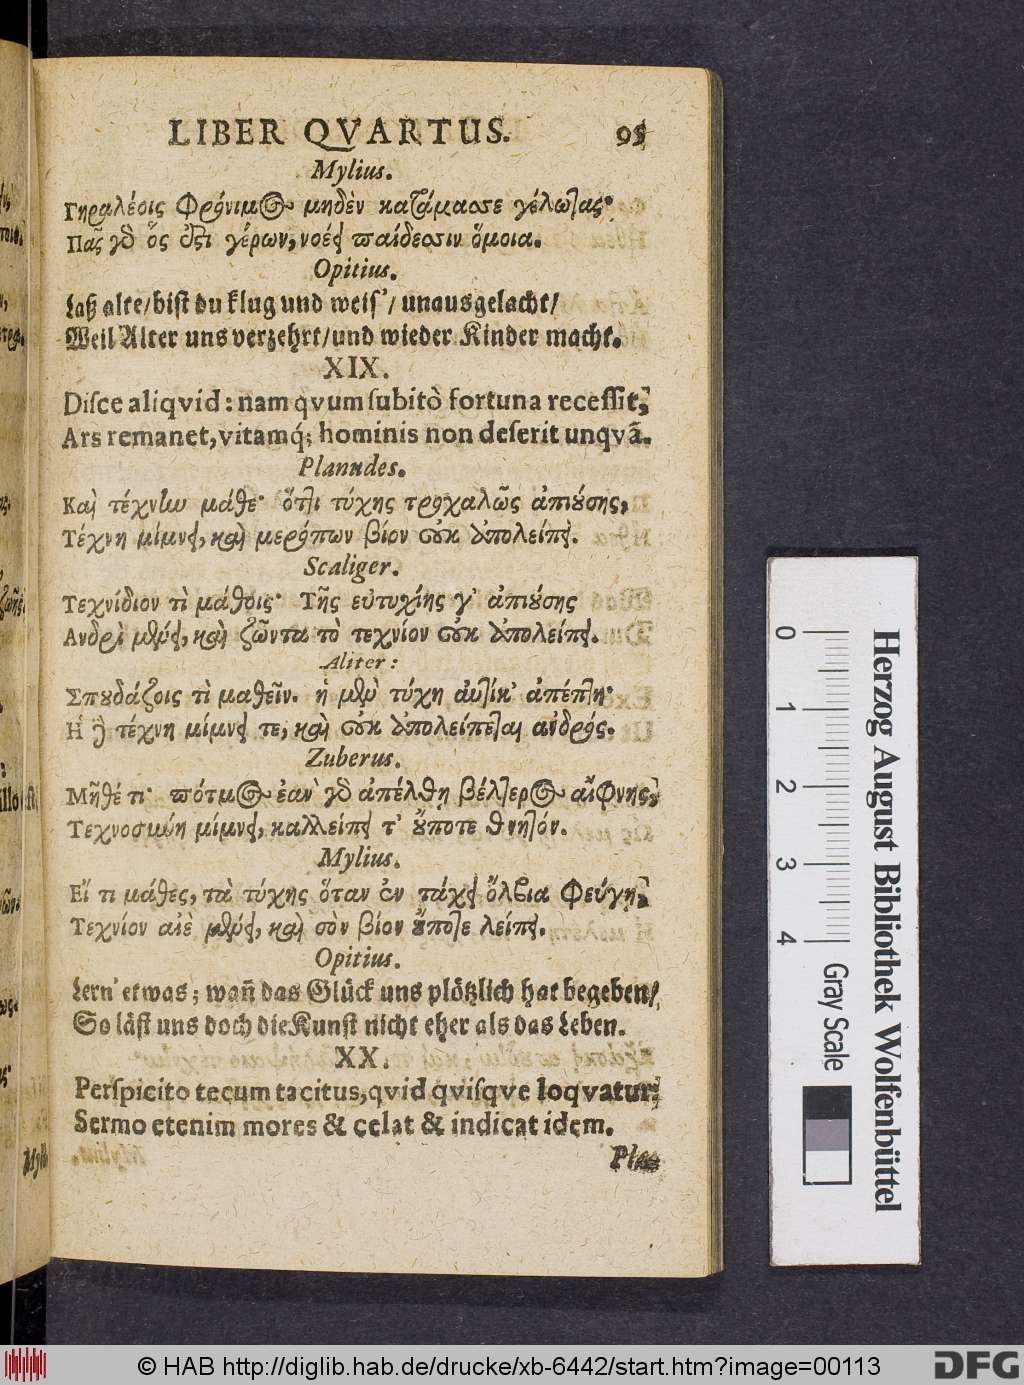 LIBER QVARTUS. 95
Mylius.
Γηραλέοις φρόνιμος μηδὲν καταμώσε γέλωτας·
Πᾶς γὸ ὅς ἐςι γέρων, νοέει παίδεσσιν ὅμοια.
Opitius.
Laß alte/bist du klug und weis'/unausgelacht/
Weil Alter uns verzehrt/und wieder Kinder macht.
XIX.
Disce aliqvid: nam qvum subitò fortuna recessit,
Ars remanet, vitamq́; hominis non deserit unqvã.
Planudes.
Καὶ τέχνην μάθε· ὅτι τύχης τροχαλῶς ἀπιούσης,
Τέχνη μίμνει, καὶ μερόπων βίον οὐκ ἀπολείπει.
Scaliger.
Τεχνίδιον τὶ μάθοις· Τῆς εὐτυχίης γ' ἀπιούσης
Ανδρὶ μένει, καὶ ζῶντα τὸ τεχνίον οὐκ ἀπολείπει.
Aliter:
Σπουδάζοις τὶ μαθεῖν. ἡ μὲν τύχη αὐτίκ' ἀπέπτη·
Ἡ δὲ τέχνη μίμνει τε, καὶ οὐκ ἀπολείπεται ἀνδρός.
Zuberus.
Μῆθέ τι· πότμος ἐὰν γὸ ἀπέλθῃ βέλτερος αἴφνης,
Τεχνοσμύη μίμνει, καλλείπει τ' οὔποτε θνητόν.
Mylius.
Εἴ τι μάθες, τὰ τύχης ὅταν ἐν τάχει ὄλβια φεύγῃ,
Τεχνίον αἰὲ μένει, καὶ σὸν βίον οὔποτε λείπει.
Opitius.
Lern' etwas; wañ das Glück uns plötzlich hat begeben/
So läst uns doch die Kunst nicht eher als das Leben.
XX.
Perspicito tecum tacitus, qvid qvisqve loqvatur:
Sermo etenim mores & celat & indicat idem.
Pla-
0 1 2 3 4 Gray Scale
Herzog August Bibliothek Wolfenbüttel
© HAB http://diglib.hab.de/drucke/xb-6442/start.htm?image=00113
DFG